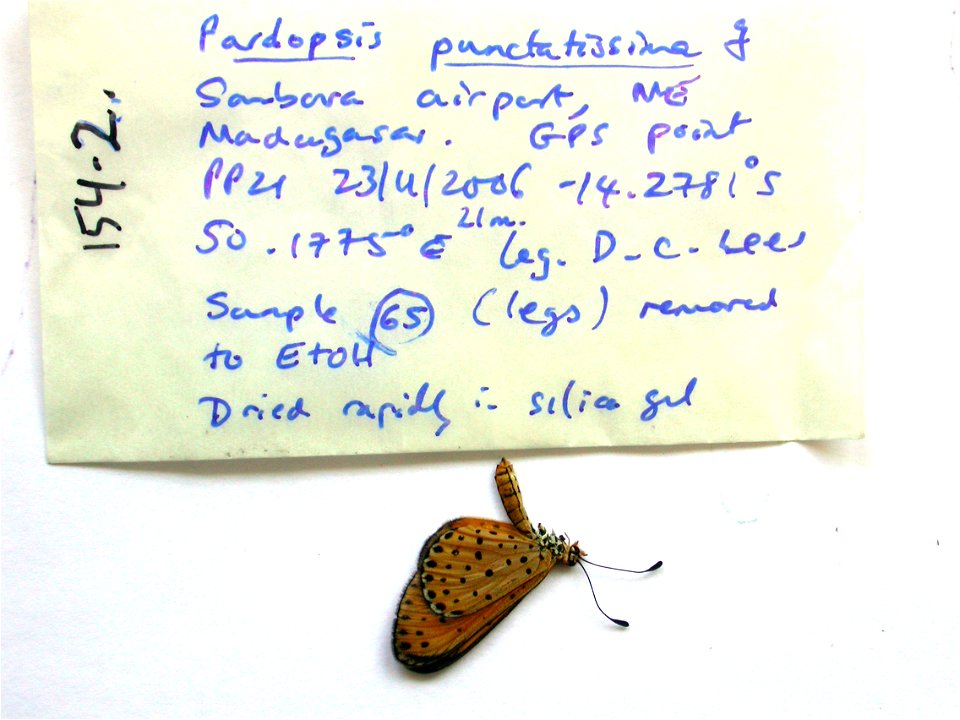 Pardopsis punctatissima ♀
Sambava airport, NE
Madagascar. GPS point
PP21 23/4/2006 -14.2781°S
50.1775°E 21m. leg. D.C. Lees
Sample 65 (legs) removed
to EtOH
Dried rapidly in silica gel
154-2..